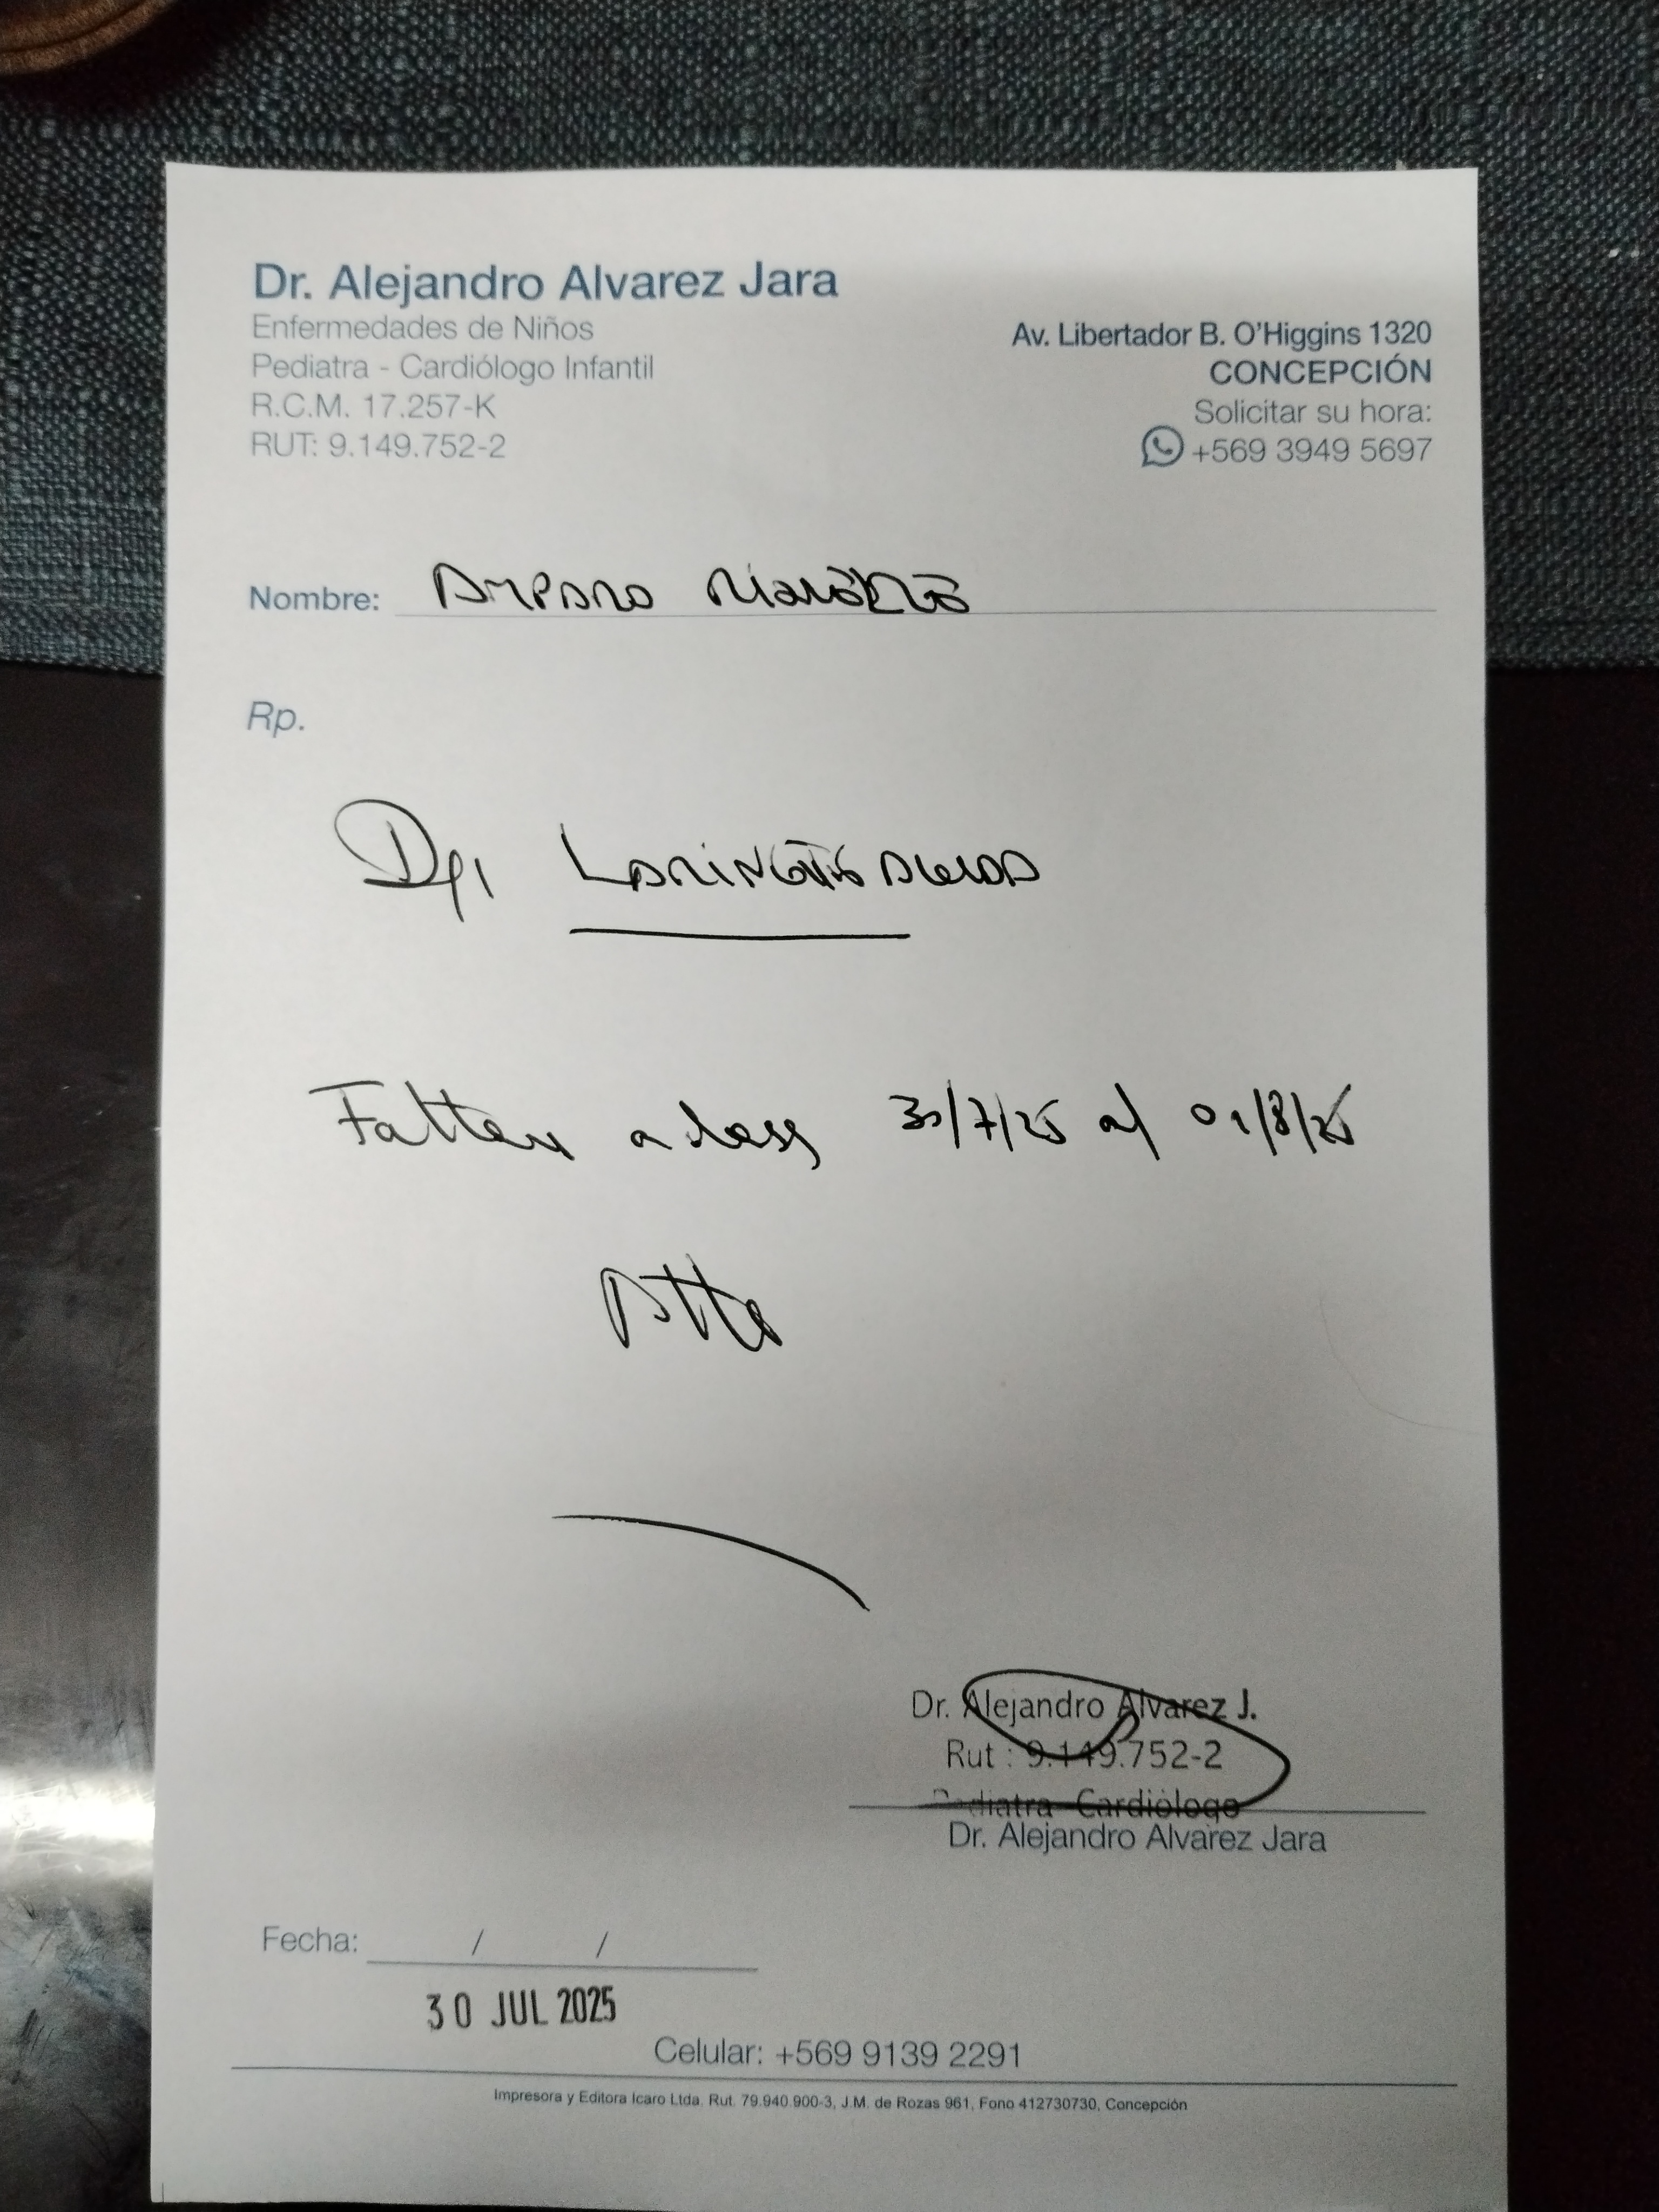 Dr. Alejandro Alvarez Jara
Enfermedades de Niños
Pediatra - Cardiólogo Infantil
R.C.M. 17.257-K
RUT: 9.149.752-2
Av. Libertador B. O'Higgins 1320
CONCEPCIÓN
Solicitar su hora:
+569 3949 5697
Nombre: Amparo
Rp.
Laringitis aguda
a 30/7/25 al 01/8/25
Atte
Dr. Alejandro Alvarez J.
Rut : 9.149.752-2
Pediatra - Cardiólogo
Dr. Alejandro Alvarez Jara
Fecha: / /
30 JUL 2025
Celular: +569 9139 2291
Impresora y Editora Icaro Ltda. Rut. 79.940.900-3, J.M. de Rozas 961, Fono 412730730, Concepción